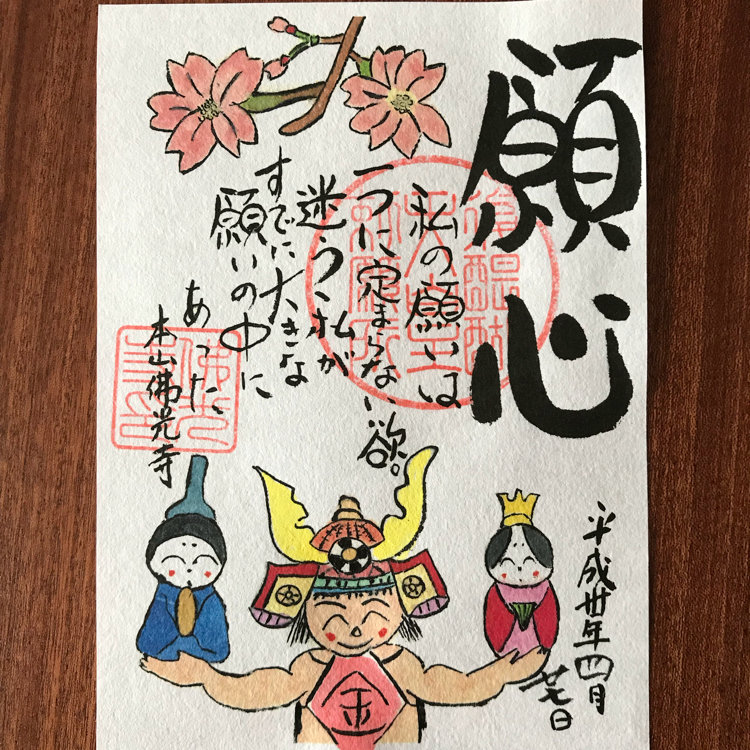 願心
後醍醐
天皇
勅願所
私の願いは
一つに定まらない欲。
迷う、私が
すでに大きな
願いの中に
あった、
本山佛光寺
平成卅年四月
廿七日
金